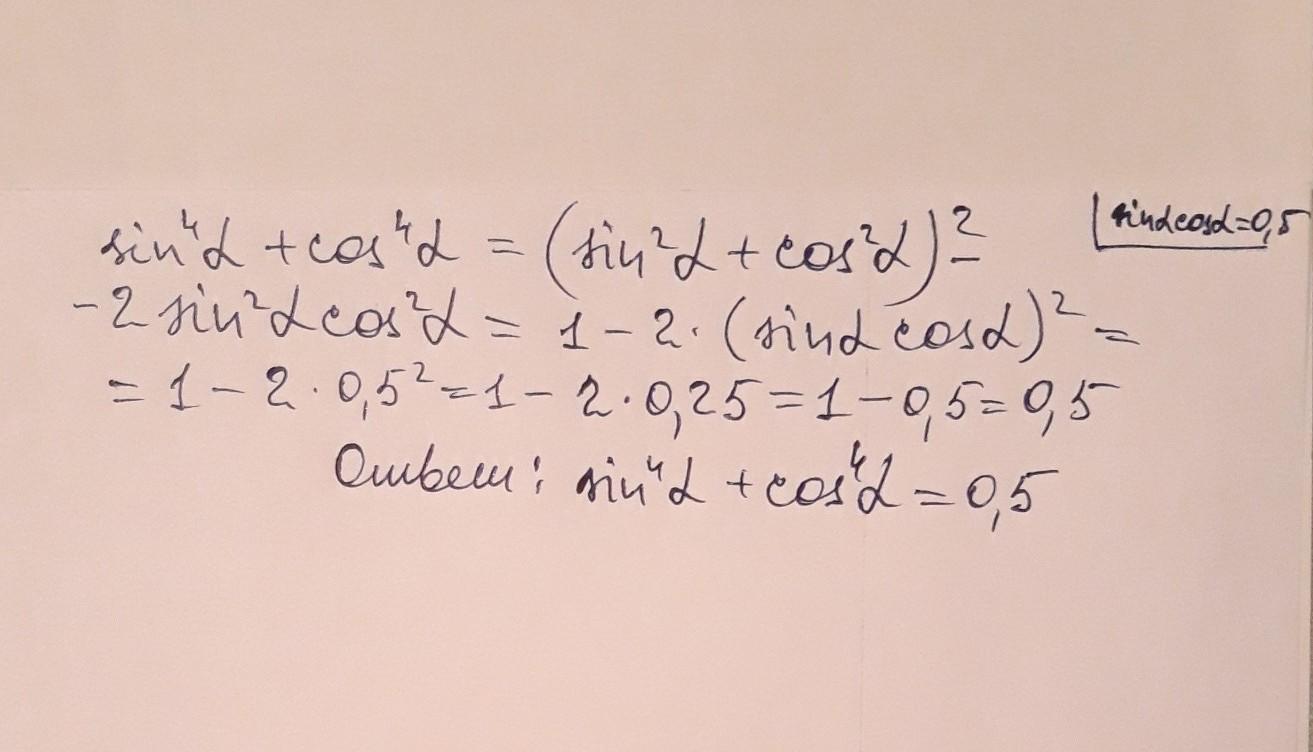 sin⁴α + cos⁴α = (sin²α + cos²α)² –
sinαcosα=0,5
-2 sin²αcos²α = 1 – 2· (sinα cosα)² =
= 1 – 2 · 0,5² = 1 – 2·0,25 = 1 – 0,5 = 0,5
Ответ: sin⁴α + cos⁴α = 0,5